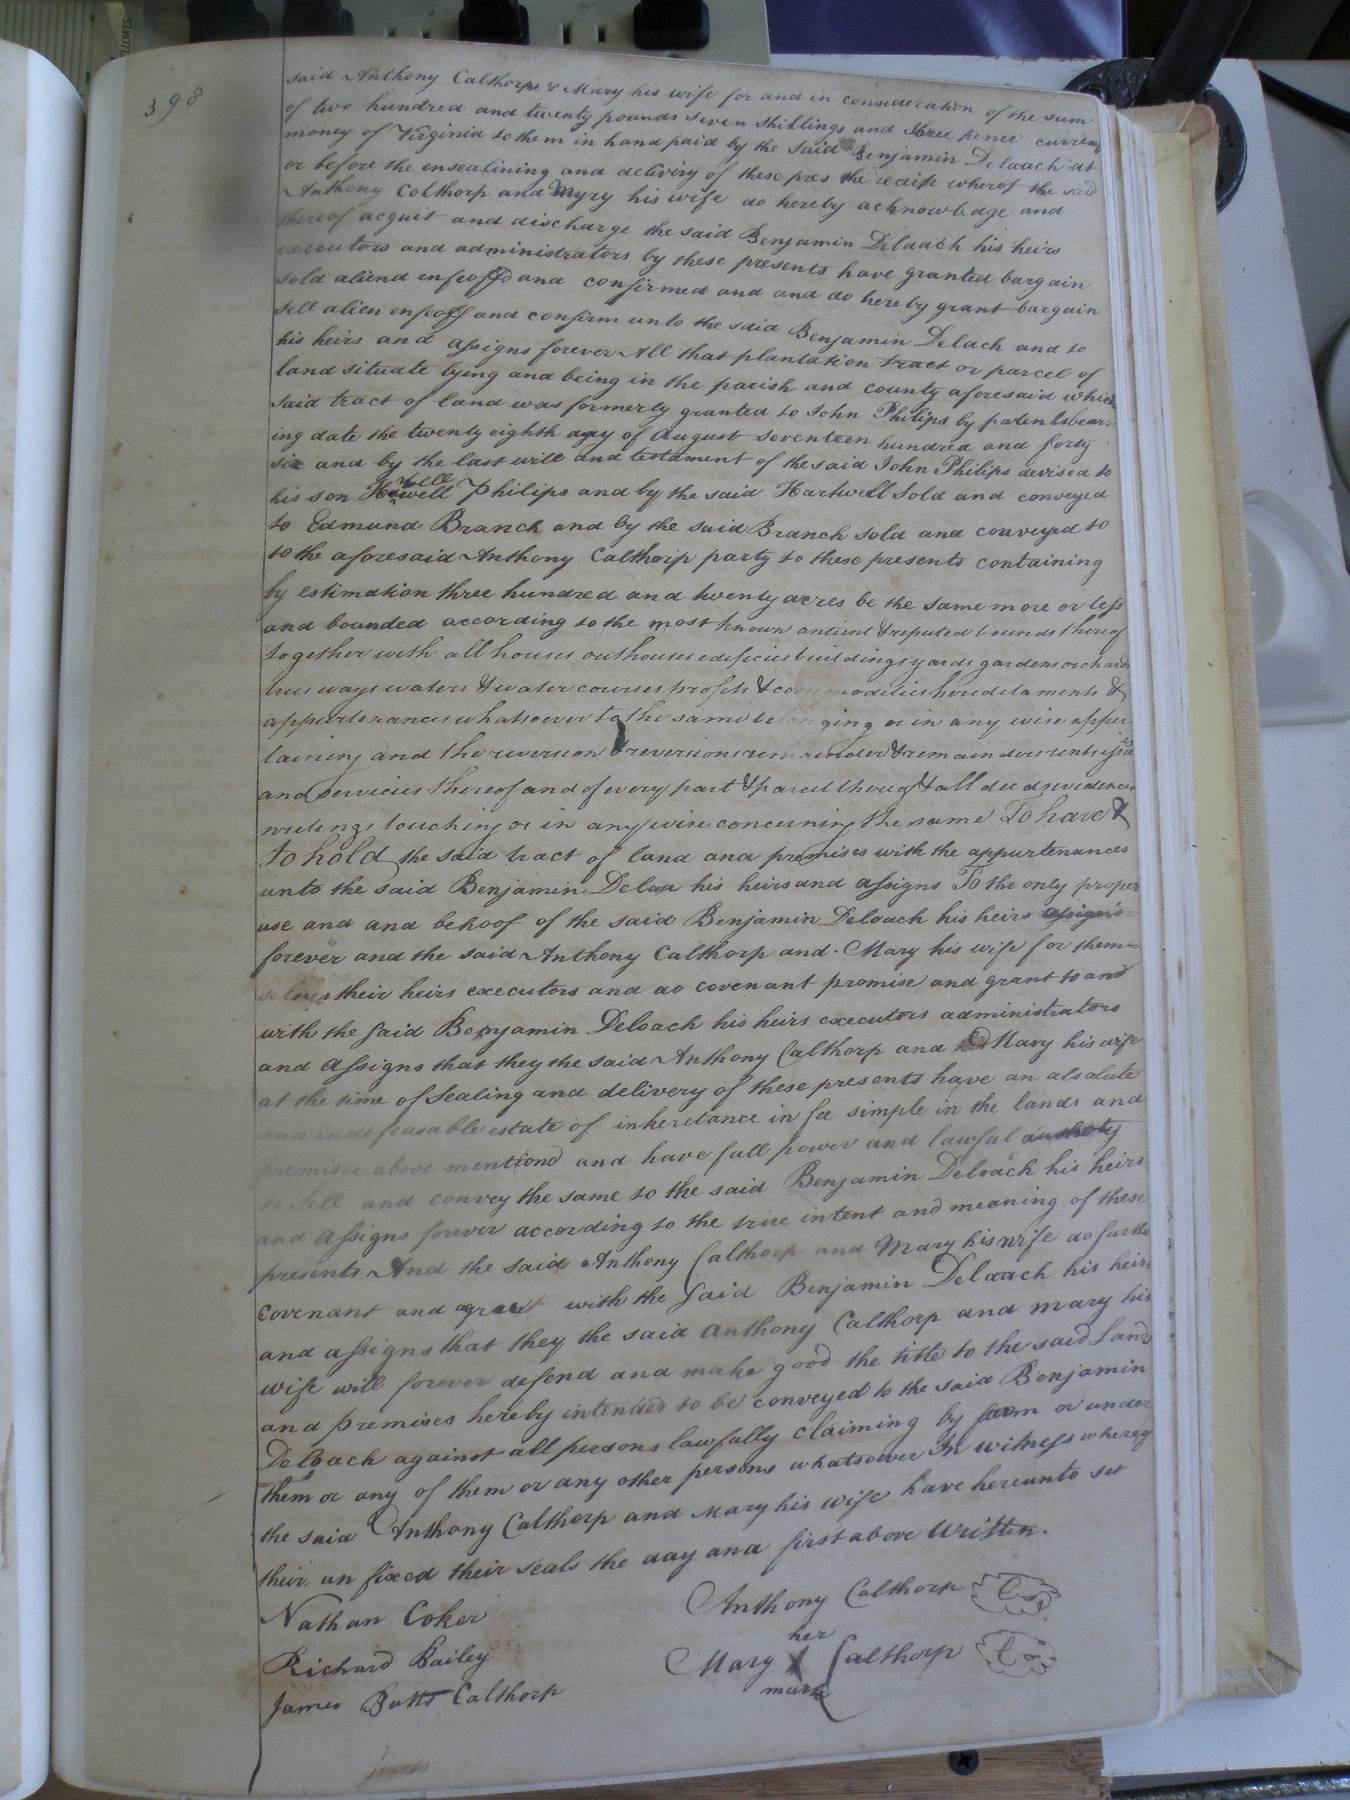 398
said Anthony Calthorp & Mary his wife for and in consideration of the sum
of two hundred and twenty pounds seven shillings and three pence current
money of Virginia to them in hand paid by the said Benjamin Deloach at
or before the ensealining and deliviry of these pres the receip whereof the said
Anthony Colthorp and Myry his wife do hereby acknowledge and
thereof acquit and discharge the said Benjamin Deloach his heirs
executors and administrators by these presents have granted bargain
sold aliend enfeoffd and confirmed and and do hereby grant bargain
sell alien enfeoff and confirm unto the said Benjamin Delach and to
his heirs and assigns forever All that plantation tract or parcel of
land situate lying and being in the parish and county aforesaid which
said tract of land was formerly granted to John Philips by patents bear
ing date the twenty eighth day of August seventeen hundred and forty
six and by the last will and testament of the said John Philips devised to
his son Philips and by the said Hartwell sold and conveyed
to Edmund Branch and by the said Branch sold and conveyed to
to the aforesaid Anthony Calthorp party to these presents containing
by estimation three hundred and twenty acres be the same more or less
and bounded according to the most known antient & reputed bounds thereof
together with all houses outhouses edificies buildings yards gardens orchards
ways waters & water courses profits & commodities heredetaments &
appurtenances whatsoever to the same belonging or in any wise apper
taining and the reversion & reversions remainder & remainders rents issues
and servicies thereof and of every part & parcel thereof & all deeds evidences
writings touching or in any wise concerning the same To have &
to hold the said tract of land and premises with the appurtenances
unto the said Benjamin Deloa his heirs and assigns To the only proper
use and and behoof of the said Benjamin Deloach his heirs assigns
forever and the said Anthony Calthorp and Mary his wife for them=
selves their heirs executors and do covenant promise and grant to and
with the said Benyamin Deloach his heirs executors administrators
and assigns that they the said Anthony Calthorp and Mary his wife
at the time of sealing and delivery of these presents have an absolute
and indefeasable estate of inheretance in fee simple in the lands and
premises above mentiond and have full power and lawful
to sell and convey the same to the said Benjamin Deloach his heirs
and assigns forever according to the true intent and meaning of these
presents And the said Anthony Calthorp and Mary his wife do further
covenant and with the said Benjamin Deloach his heirs
and assigns that they the said Anthony Calthorp and mary his
wife will forever defend and make good the title to the said Land
and premises hereby intended to be conveyed to the said Benjamin
Deloach against all persons lawfully claiming by from or under
them or any of them or any other persons whatsoever In witness whereof
the said Anthony Calthorp and Mary his wife have hereunto set
their an fixed their seals the day and first above written.
Nathan Coker Anthony Calthorp LS
her
Richard Bailey Mary X Calthorp LS
mark
James Butts Calthorp